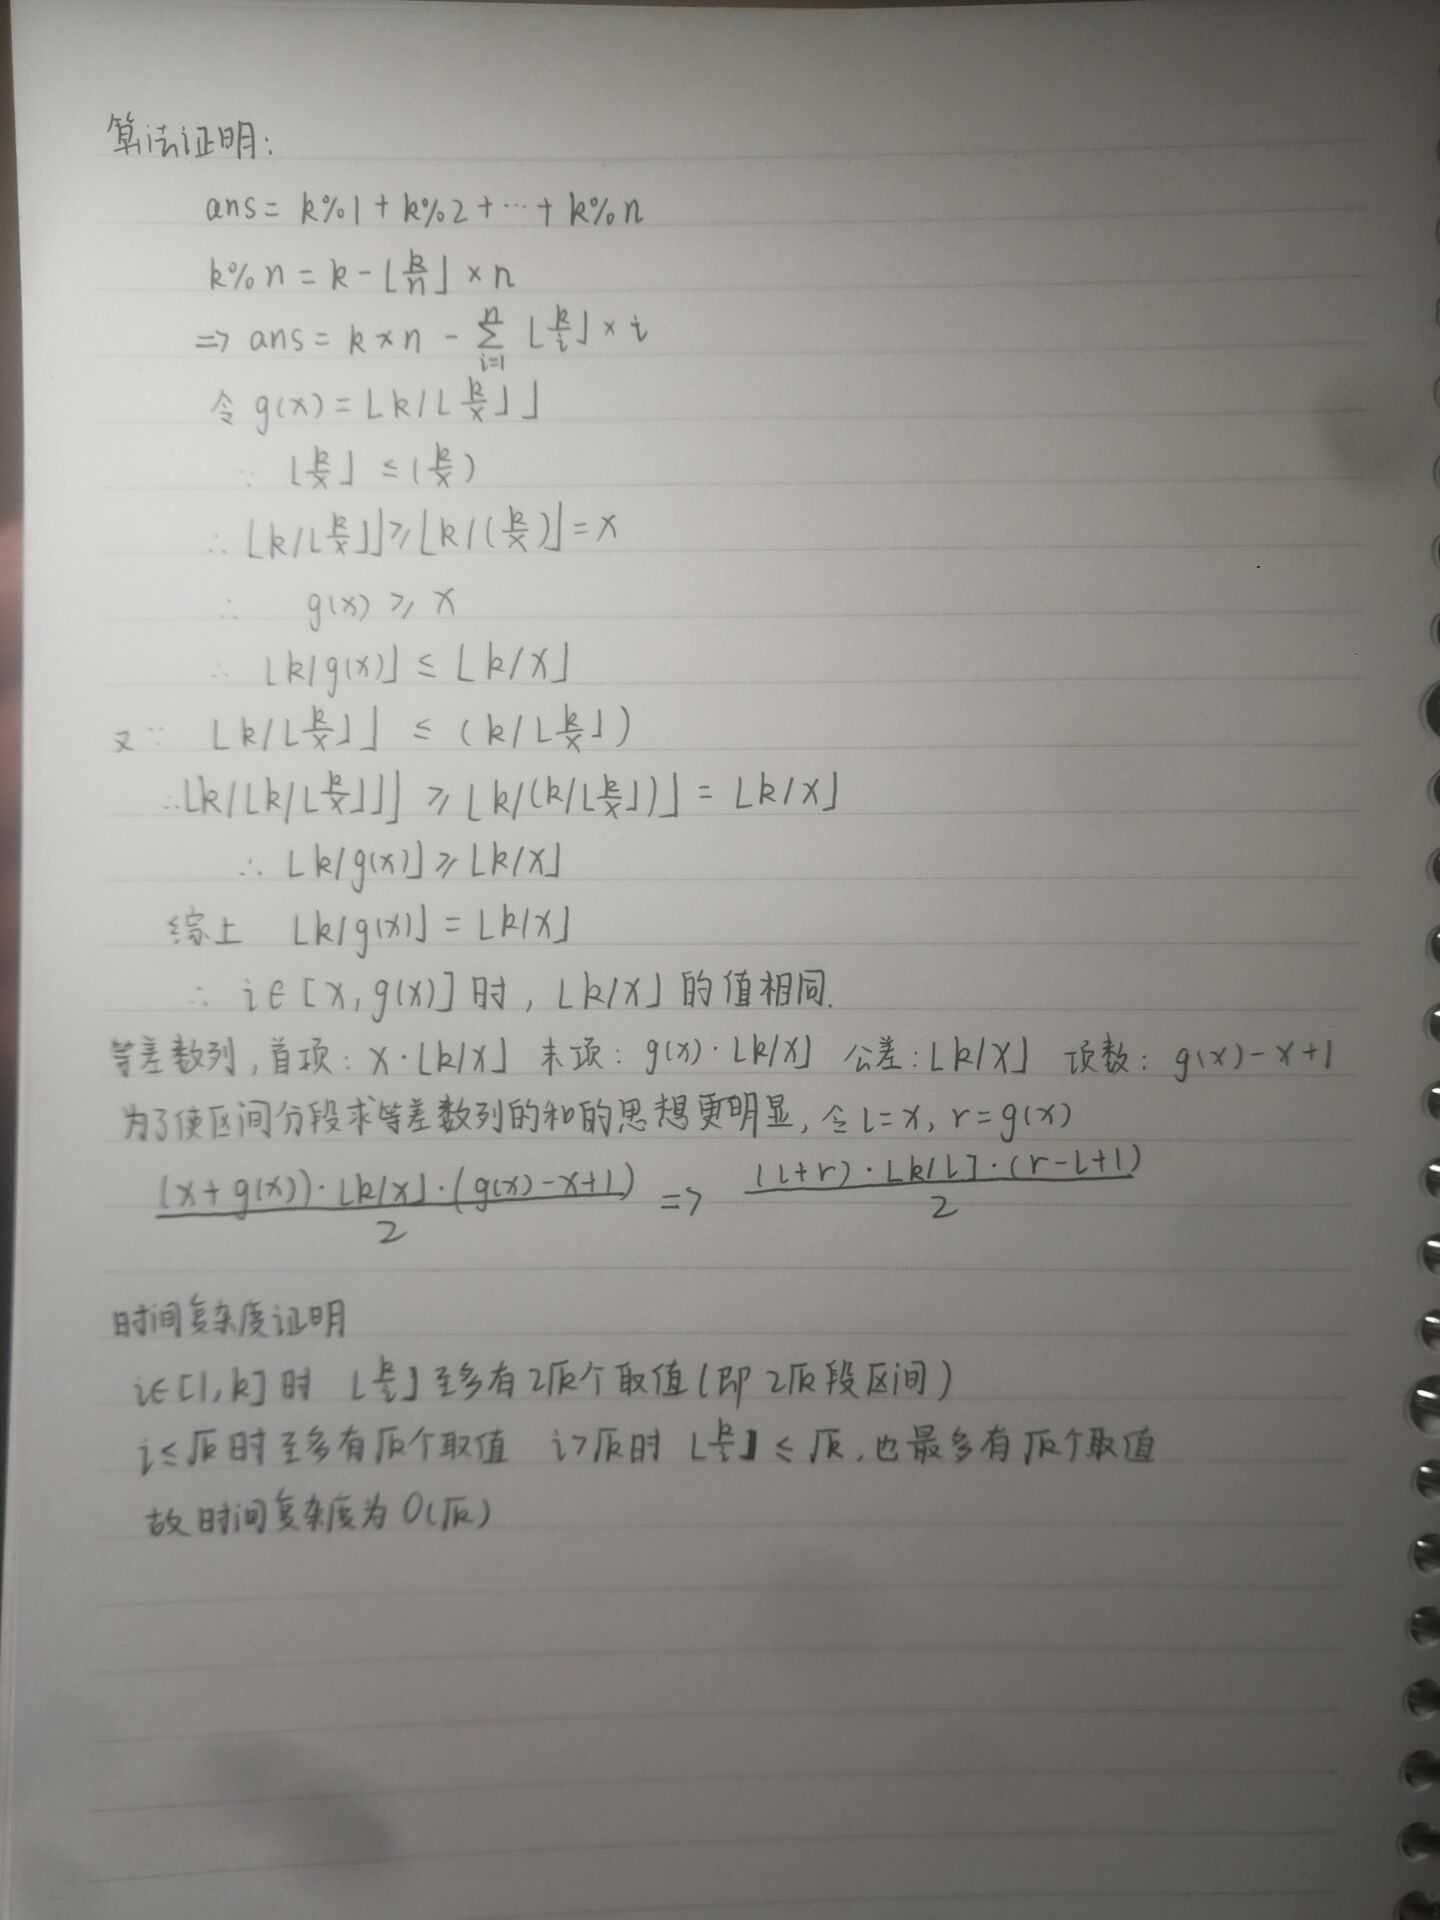 算法证明:
ans = k%1 + k%2 + ⋯ + k%n
k%n = k - ⌊k/n⌋ × n
=> ans = k × n - ∑_{i=1}^{n} ⌊k/i⌋ × i
令 g(x) = ⌊k/⌊k/x⌋⌋
∵ ⌊k/x⌋ ≤ (k/x)
∴ ⌊k/⌊k/x⌋⌋ ≥ ⌊k/(k/x)⌋ = x
∴ g(x) ≥ x
∴ ⌊k/g(x)⌋ ≤ ⌊k/x⌋
又∵ ⌊k/⌊k/x⌋⌋ ≤ (k/⌊k/x⌋)
∴ ⌊k/⌊k/⌊k/x⌋⌋⌋ ≥ ⌊k/(k/⌊k/x⌋)⌋ = ⌊k/x⌋
∴ ⌊k/g(x)⌋ ≥ ⌊k/x⌋
综上 ⌊k/g(x)⌋ = ⌊k/x⌋
∴ i∈[x, g(x)] 时, ⌊k/x⌋ 的值相同.
等差数列, 首项: x·⌊k/x⌋ 末项: g(x)·⌊k/x⌋ 公差: ⌊k/x⌋ 项数: g(x)-x+1
为了使区间分段求等差数列的和的思想更明显, 令 l=x, r=g(x)
(x+g(x))·⌊k/x⌋·(g(x)-x+1)/2 => (l+r)·⌊k/l⌋·(r-l+1)/2
时间复杂度证明
i∈[1,k] 时 ⌊k/i⌋ 至多有 2√k 个取值 (即 2√k 段区间)
i≤√k 时至多有 √k 个取值 i>√k 时 ⌊k/i⌋ ≤ √k, 也最多有 √k 个取值
故时间复杂度为 O(√k)